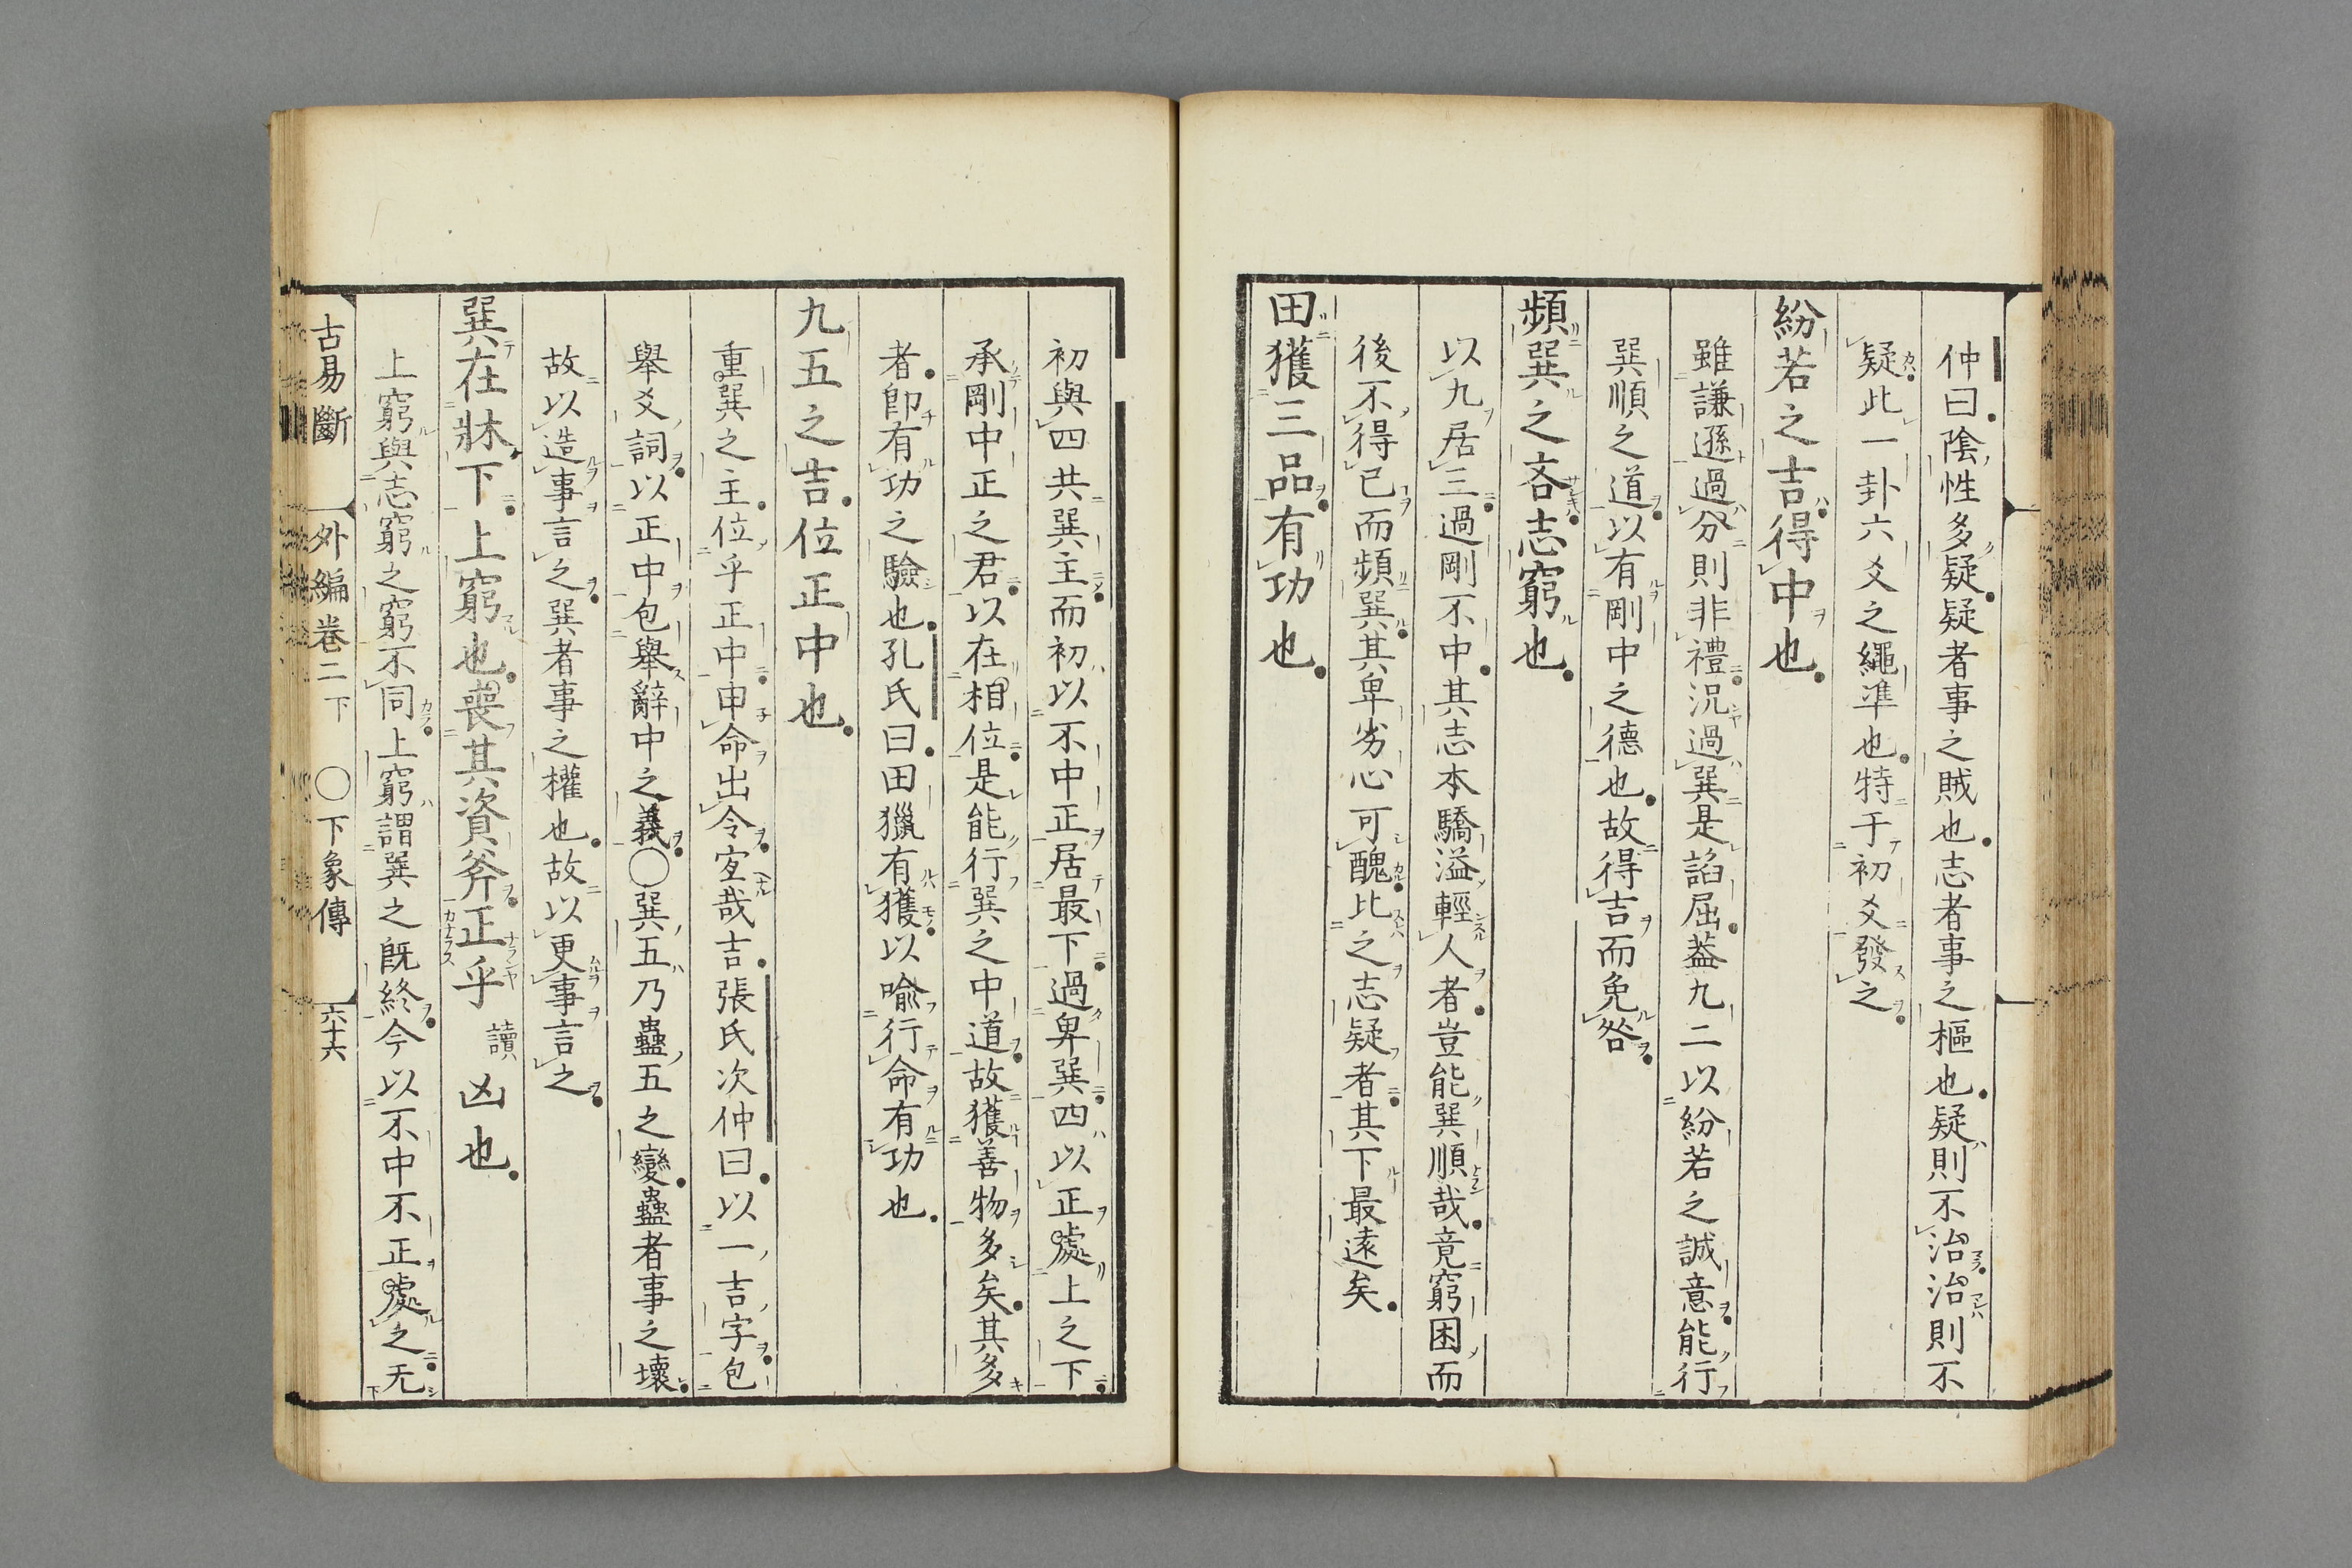 仲曰陰性多疑疑者事之賊也志者事之樞也疑則不治治則不
疑此一卦六爻之繩準也特于初爻發之
紛若之吉得中也
雖謙遜過分則非禮況過巽是諂屈葢九二以紛若之誠意能行
巽順之道以有剛中之德也故得吉而免咎
頻巽之吝志窮也
以九居三過剛不中其志本驕溢輕人者豈能巽順哉竟窮困而
後不得已而頻巽其卑劣心可醜比之志疑者其下最遠矣
田獲三品有功也
初與四共巽主而初以不中正居最下過卑巽四以正處上之下
承剛中正之君以在相位是能行巽之中道故獲善物多矣其多
者卽有功之驗也孔氏曰田獵有獲以喩行命有功也
九五之吉位正中也
重巽之主位乎正中申命出令宐哉吉張氏次仲曰以一吉字包
舉爻詞以正中包舉辭中之義〇巽五乃蠱五之變蠱者事之壞
故以造事言之巽者事之權也故以更事言之
巽在牀下上窮也喪其資斧正乎讀凶也
上窮與志窮之窮不同上窮謂巽之旣終今以不中不正處之无
古易斷 外編卷二下 〇下象傳 六十六